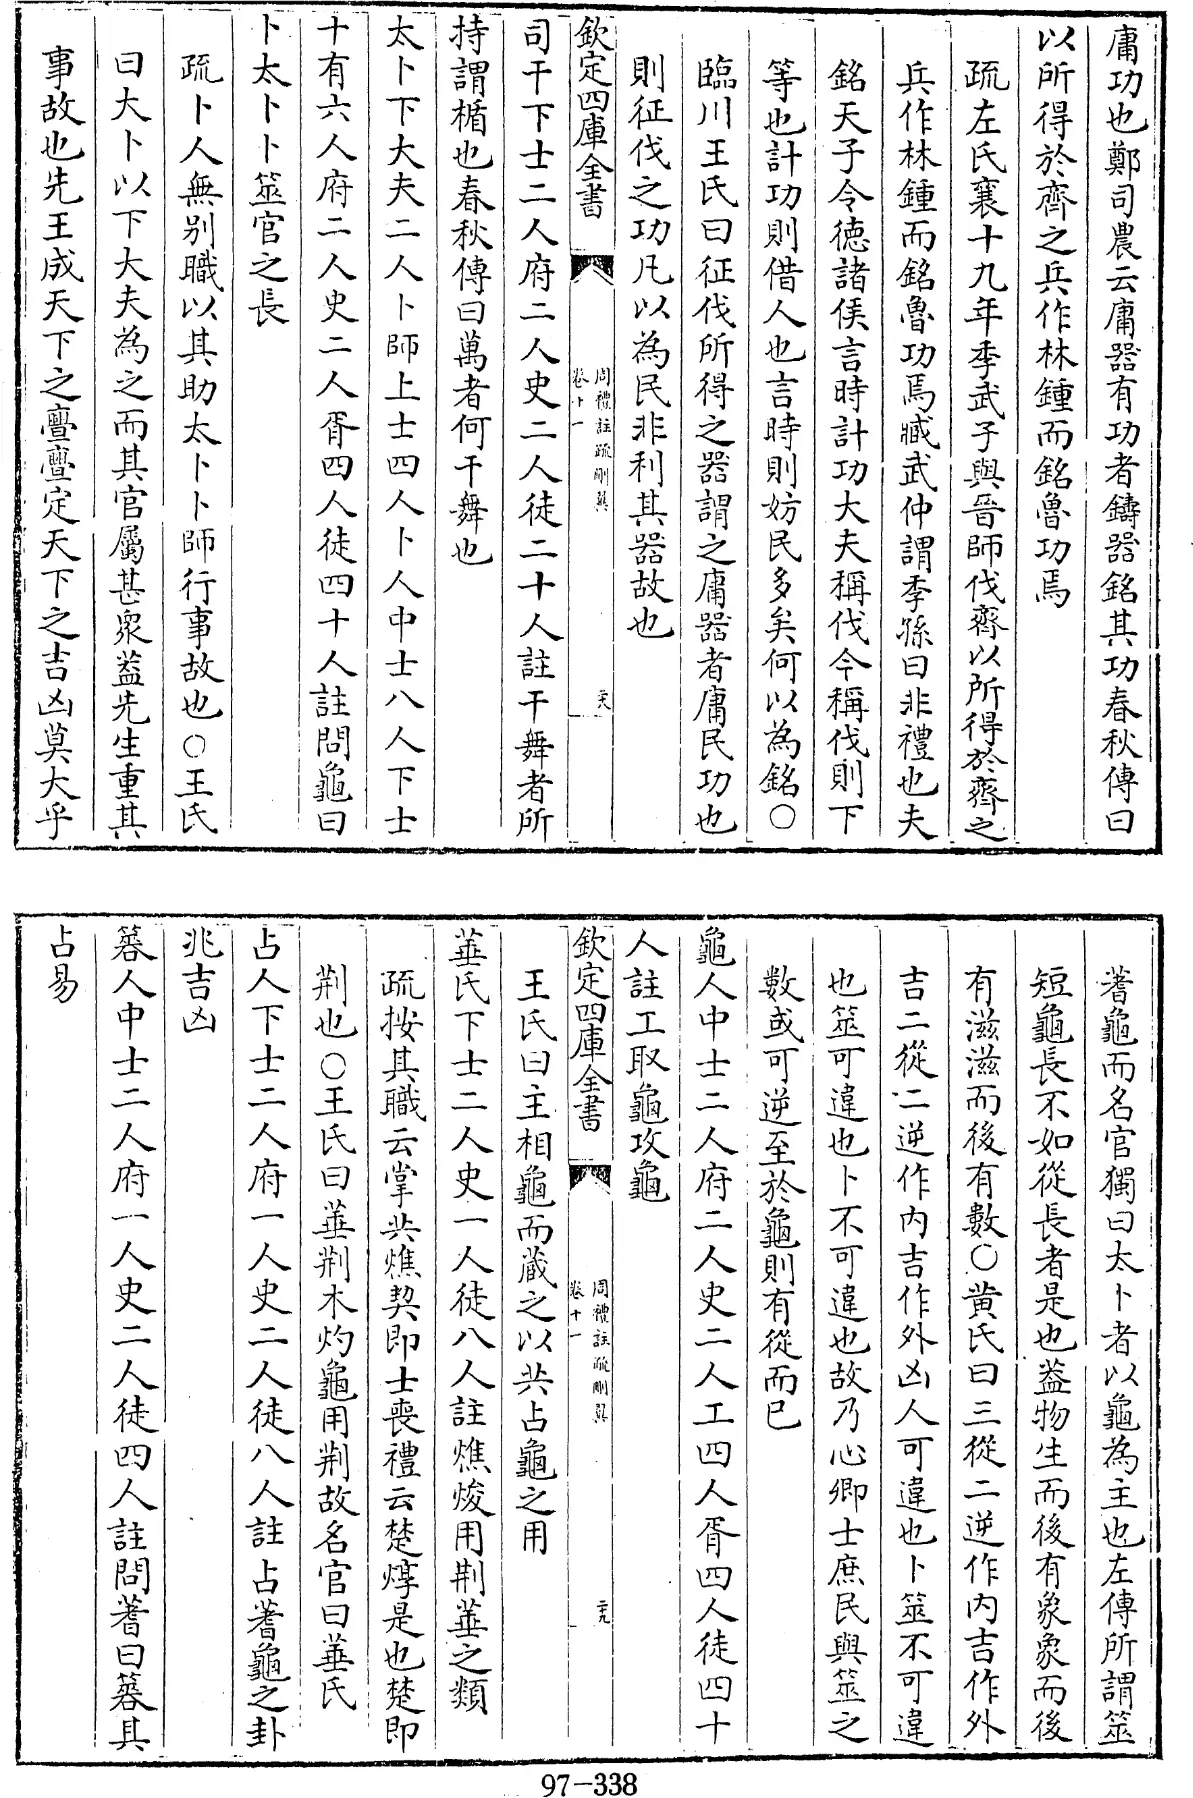 庸功也鄭司農云庸器有功者鑄器銘其功春秋傳曰
以所得於齊之兵作林鍾而銘魯功焉
疏左氏襄十九年季武子與晉師伐齊以所得於齊之
兵作林鍾而銘魯功焉臧武仲謂季孫曰非禮也夫
銘天子令德諸侯言時計功大夫稱伐今稱伐則下
等也計功則借人也言時則妨民多矣何以為銘○
臨川王氏曰征伐所得之器謂之庸器者庸民功也
則征伐之功凡以為民非利其器故也
欽定四庫全書
周禮註疏刪翼
卷十一
二十八
司干下士二人府二人史二人徒二十人註干舞者所
持謂楯也春秋傳曰萬者何干舞也
太卜下大夫二人卜師上士四人卜人中士八人下士
十有六人府二人史二人胥四人徒四十人註問龜曰
卜太卜卜筮官之長
疏卜人無别職以其助太卜卜師行事故也○王氏
曰大卜以下大夫為之而其官屬甚衆葢先生重其
事故也先王成天下之亹亹定天下之吉凶莫大乎
蓍龜而名官獨曰太卜者以龜為主也左傳所謂筮
短龜長不如從長者是也葢物生而後有象象而後
有滋滋而後有數○黄氏曰三從二逆作内吉作外
吉二從二逆作内吉作外凶人可違也卜筮不可違
也筮可違也卜不可違也故乃心卿士庶民與筮之
數或可逆至於龜則有從而已
龜人中士二人府二人史二人工四人胥四人徒四十
人註工取龜攻龜
欽定四庫全書
周禮註疏刪翼
卷十一
二十九
王氏曰主相龜而藏之以共占龜之用
菙氏下士二人史一人徒八人註燋焌用荆菙之類
疏按其職云掌共燋契即士喪禮云楚焞是也楚即
荆也○王氏曰菙荆木灼龜用荆故名官曰菙氏
占人下士二人府一人史二人徒八人註占蓍龜之卦
兆吉凶
簭人中士二人府一人史二人徒四人註問蓍曰簭其
占易
97-338